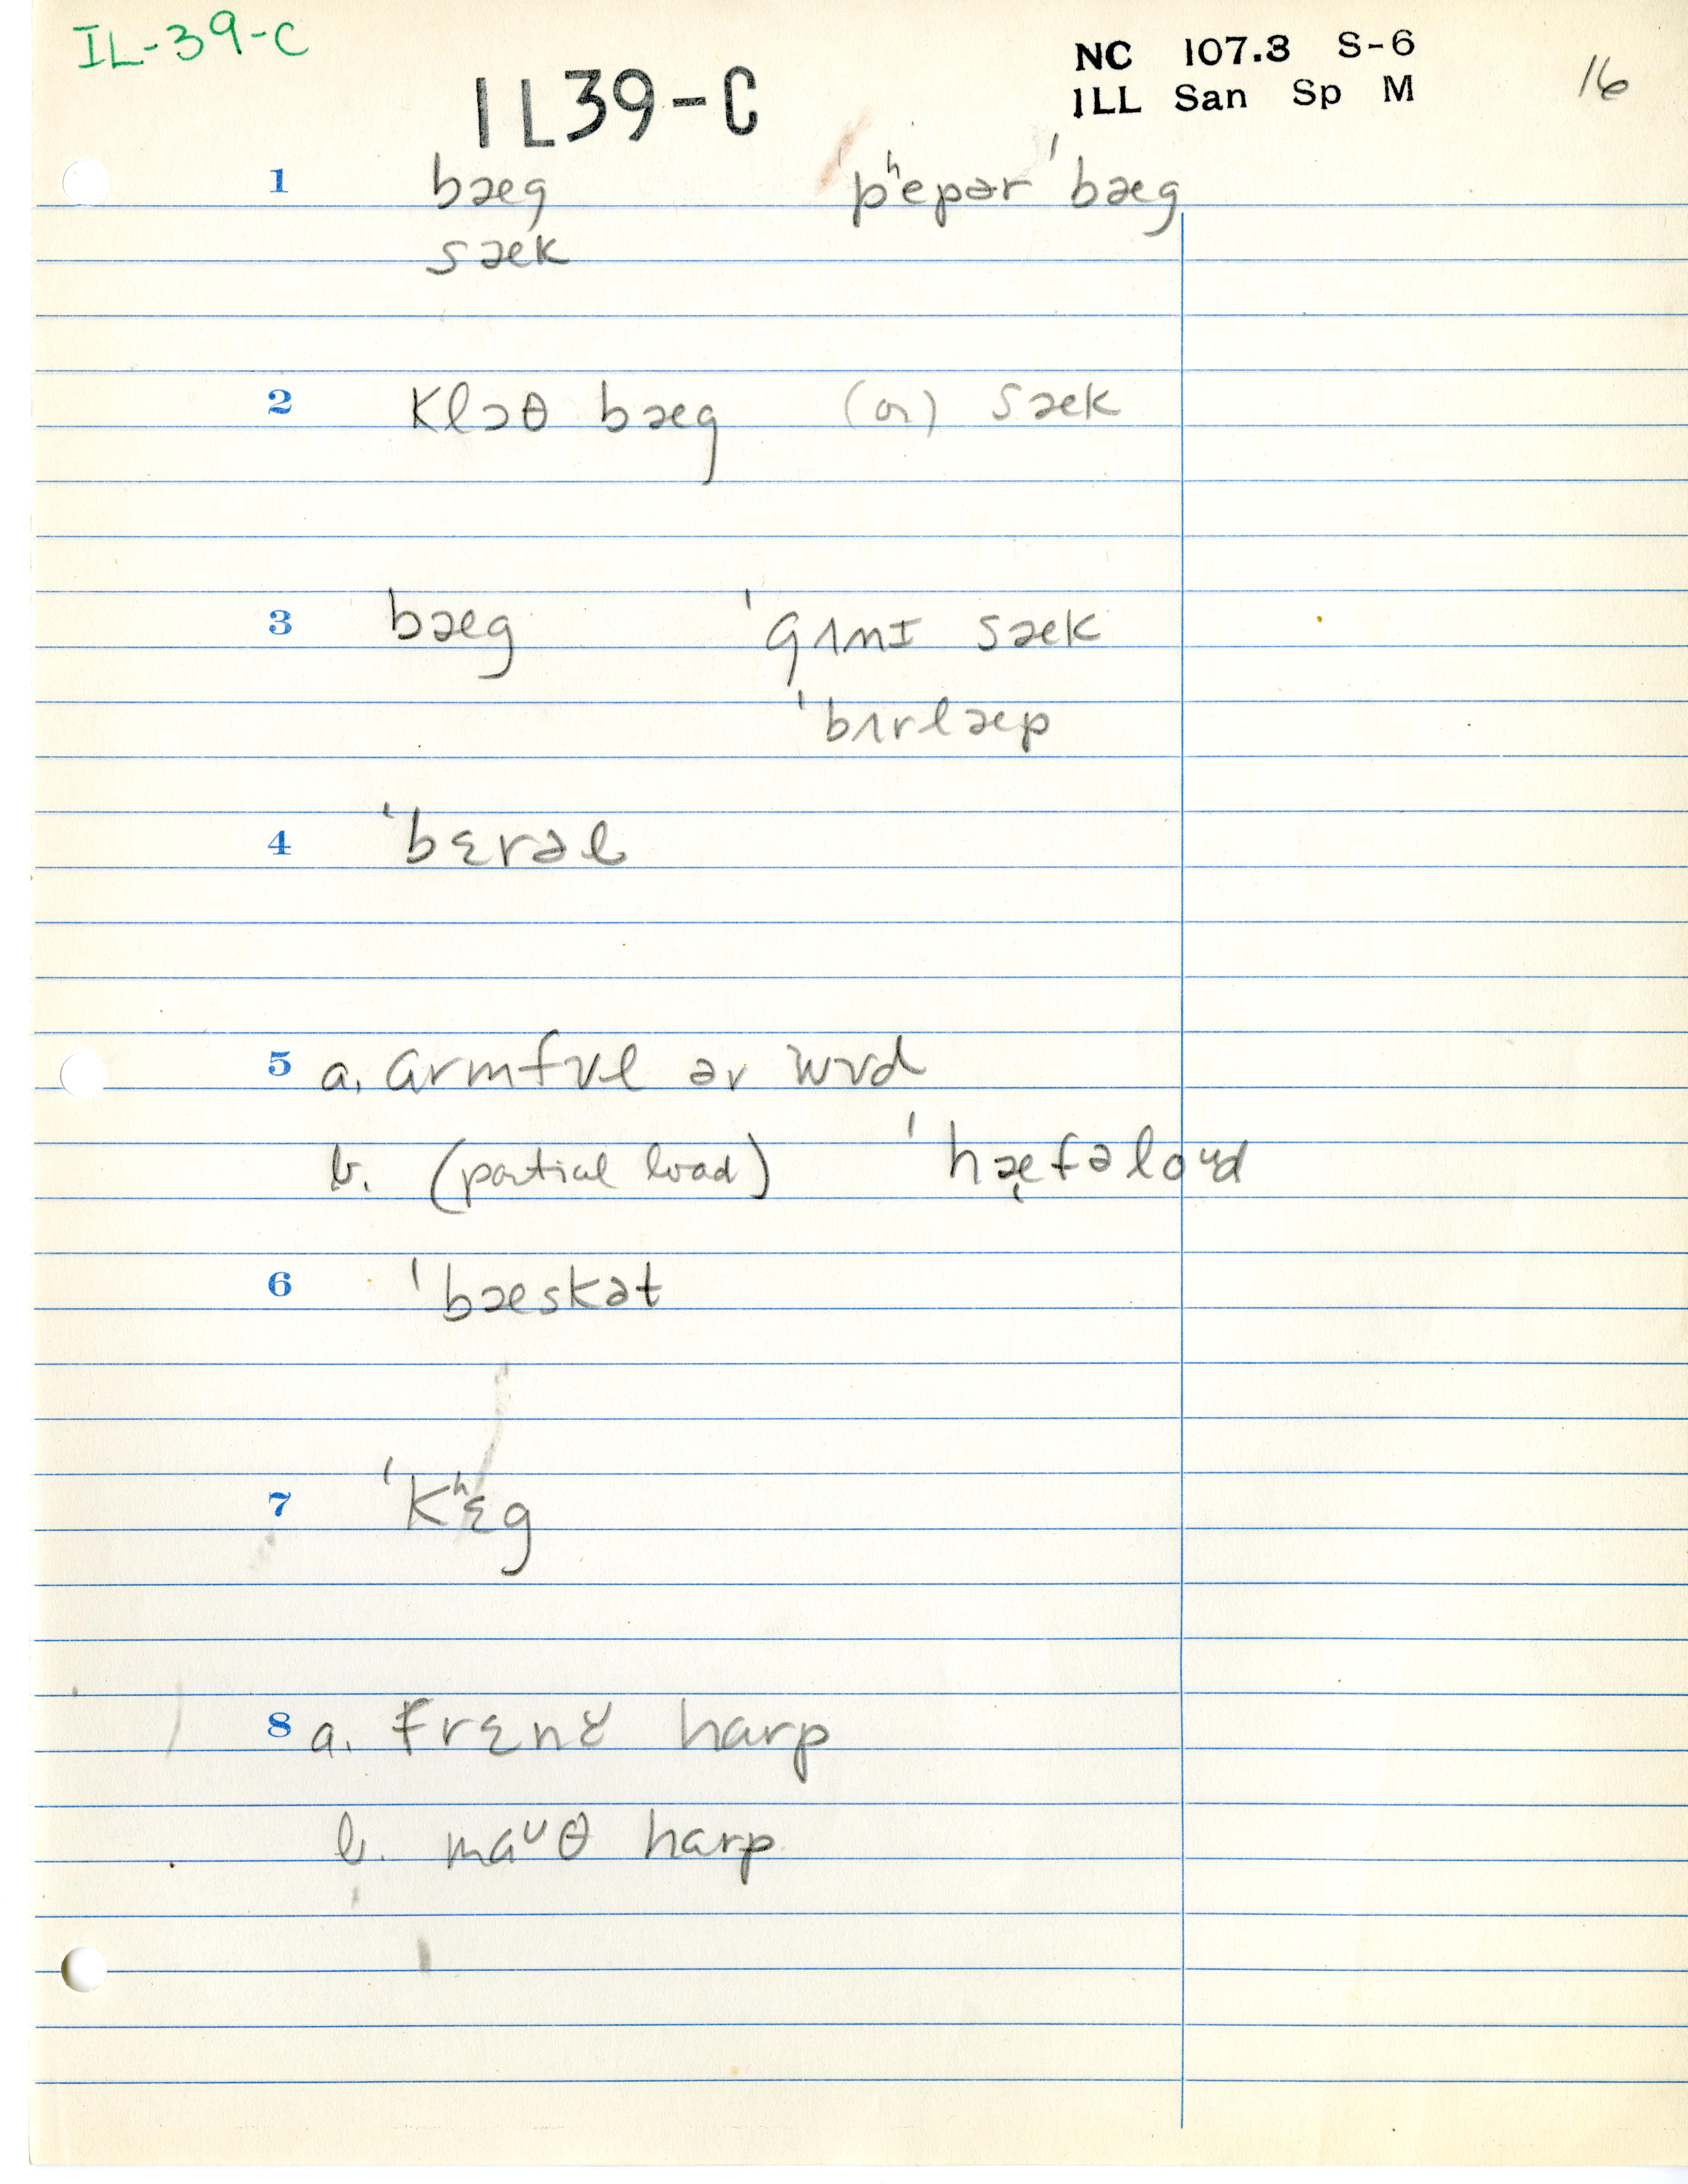 IL-39-C
IL39-C
NC 107.3 S-6
ILL San Sp M
16
1 bæg ˈpʰepər ˈbæg
sæk
2 klɔθ bæg (or) sæk
3 bæg ˈgʌnɪ sæk
ˈbʌrlæp
4 ˈbɛrəl
5 a. armfʊl əv wʊd
b. (partial load) ˈhæ̨fəloᶷd
6 ˈbæskət
7 ˈkʰɛg
8 a. frɛnč harp
b. maᶷθ harp